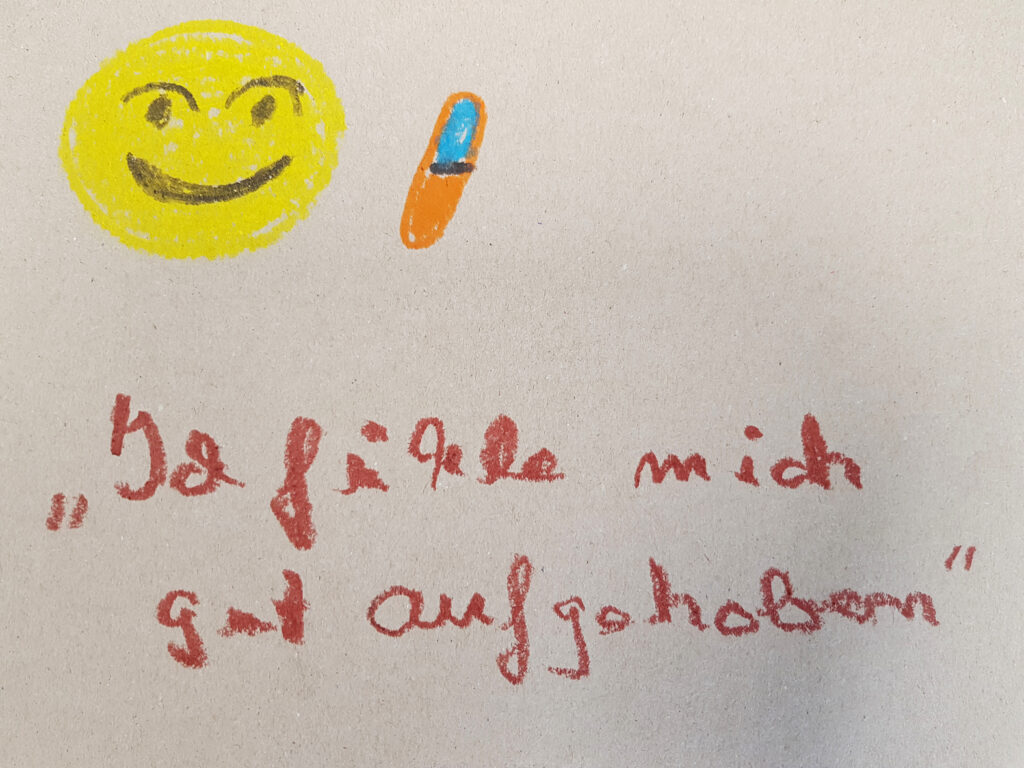 „Ich fühle mich
gut aufgehoben"